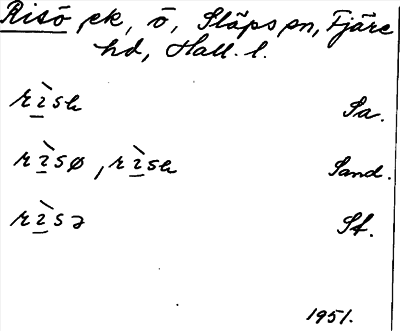 Risö, ek, ö, Släps sn, Fjäre
hd, Hall. l.
rìsh Sa.
rìsø, rìsh Sand.
rìsə Sf.
1951.